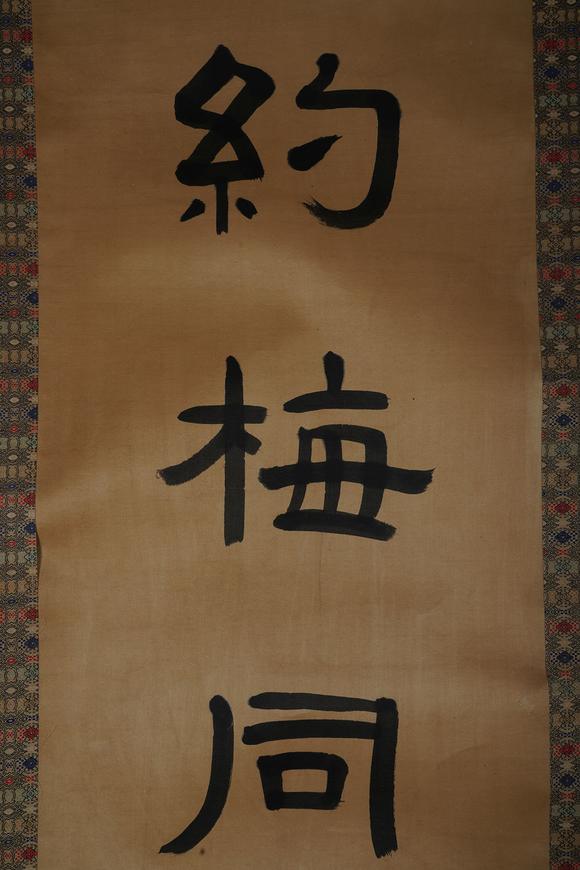 約梅同